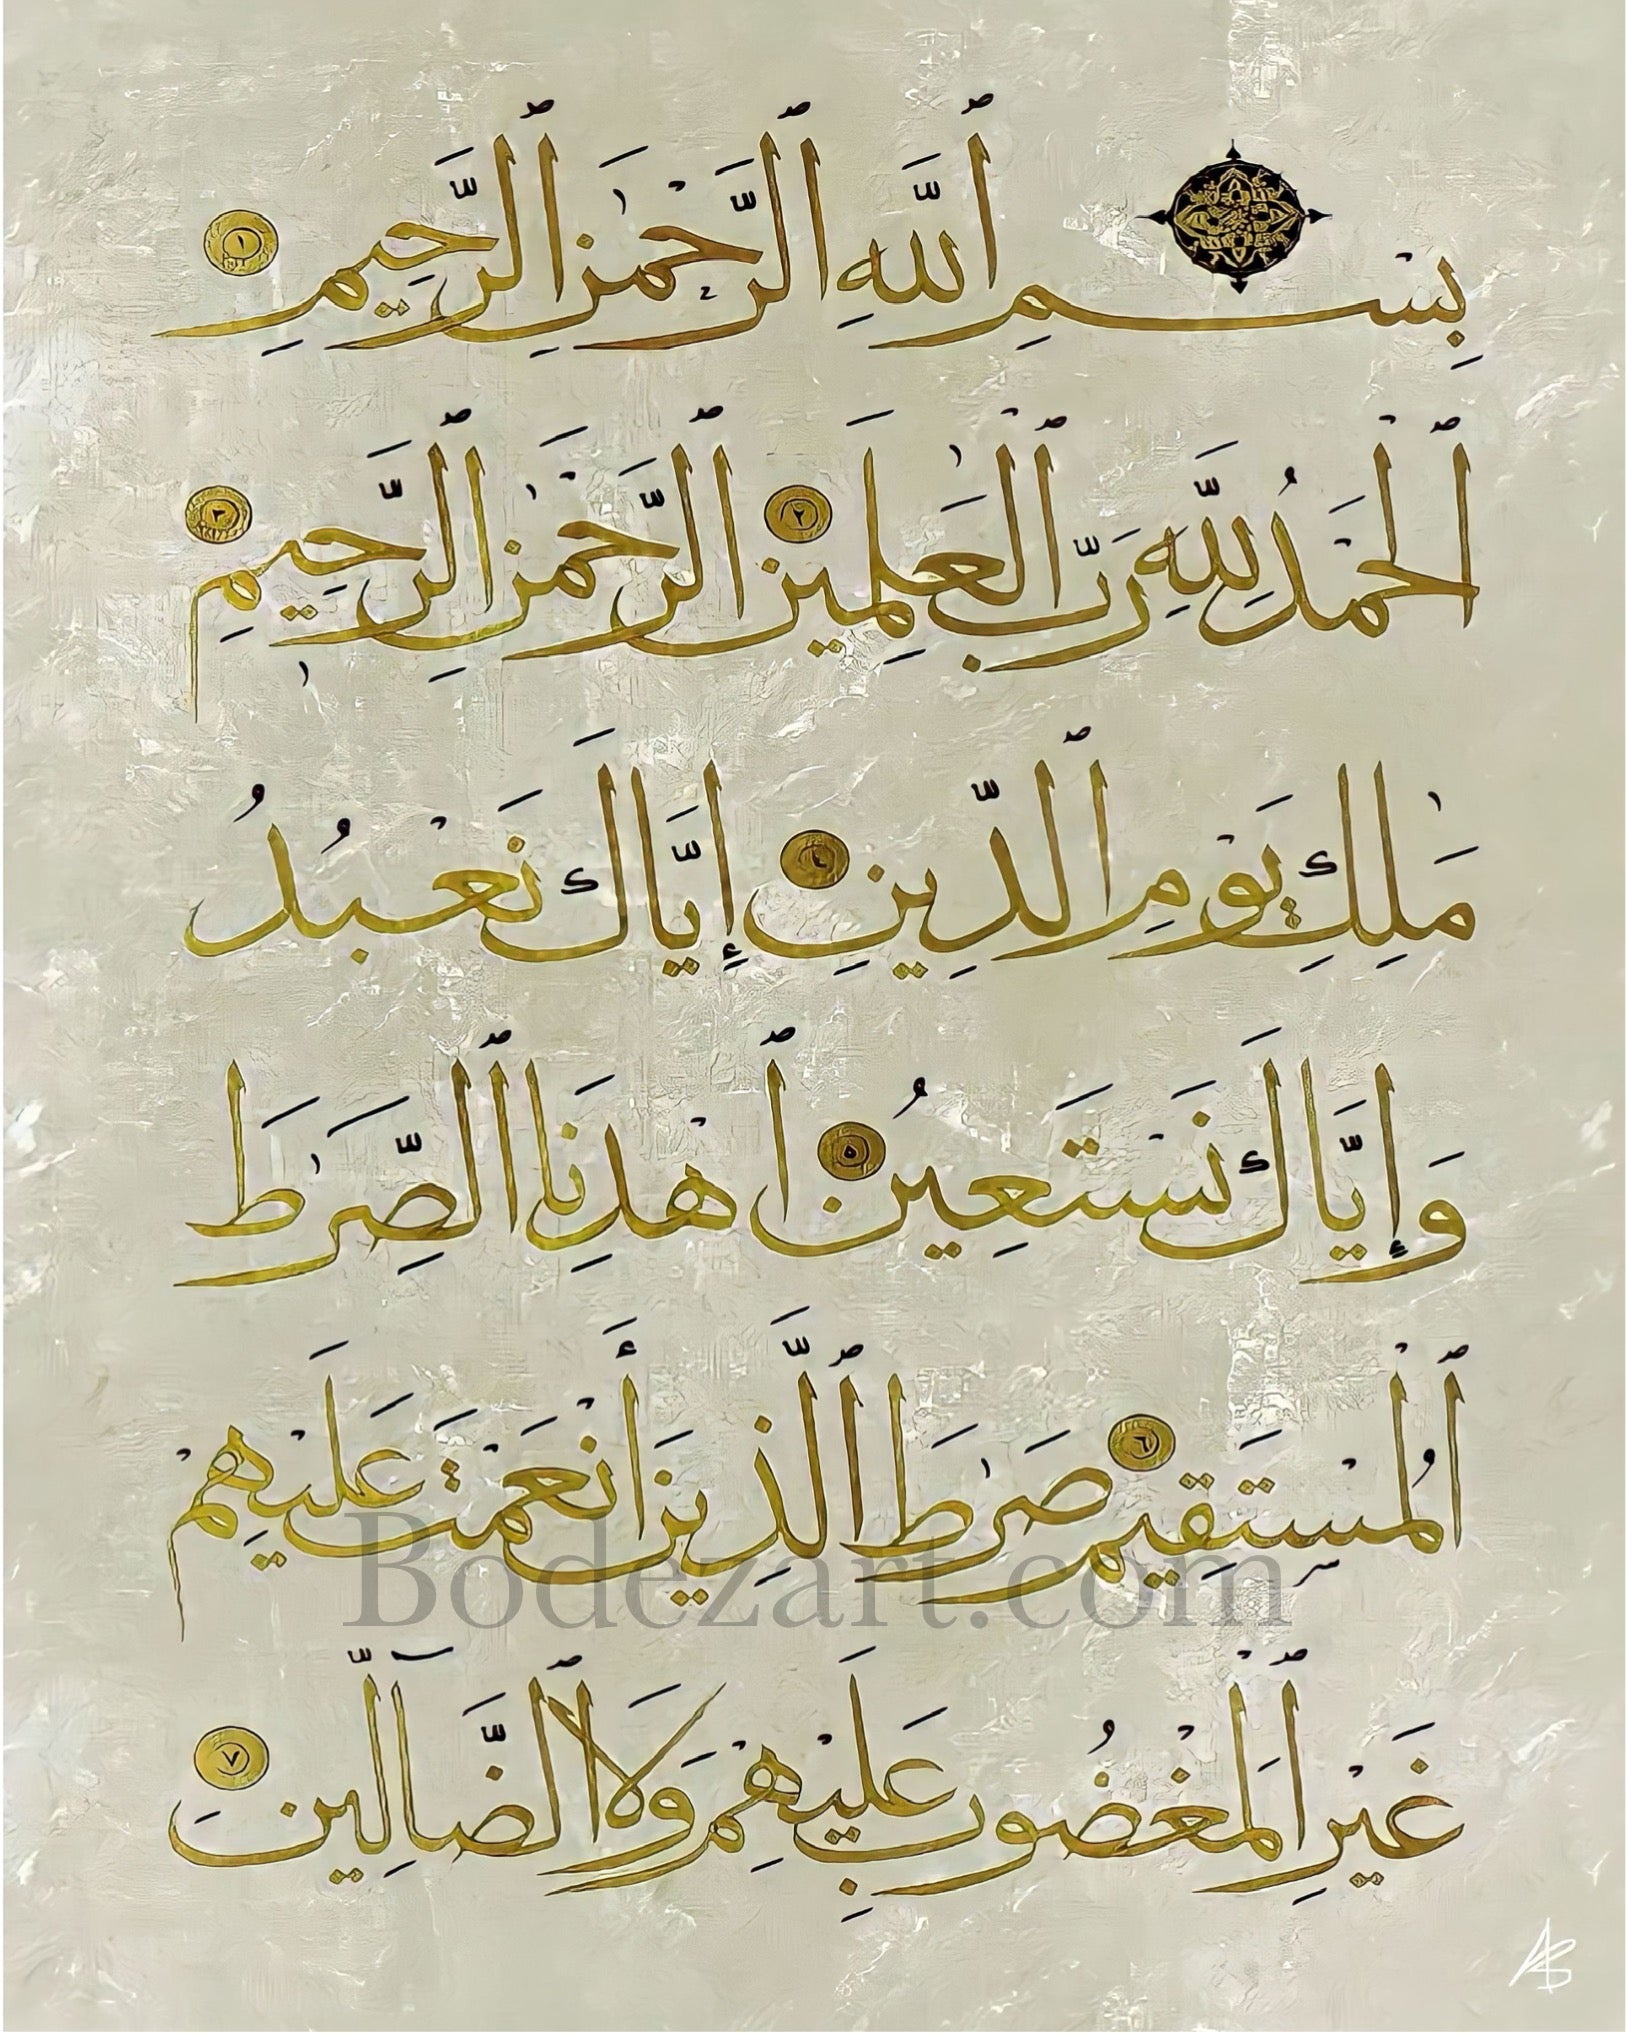 بِسْمِ ٱللَّهِ ٱلرَّحْمَٰنِ ٱلرَّحِيمِ ١
ٱلْحَمْدُ لِلَّهِ رَبِّ ٱلْعَٰلَمِينَ ٢ ٱلرَّحْمَٰنِ ٱلرَّحِيمِ ٣
مَٰلِكِ يَوْمِ ٱلدِّينِ ٤ إِيَّاكَ نَعْبُدُ
وَإِيَّاكَ نَسْتَعِينُ ٥ ٱهْدِنَا ٱلصِّرَٰطَ
ٱلْمُسْتَقِيمَ ٦ صِرَٰطَ ٱلَّذِينَ أَنْعَمْتَ عَلَيْهِمْ
غَيْرِ ٱلْمَغْضُوبِ عَلَيْهِمْ وَلَا ٱلضَّآلِّينَ ٧
Bodezart.com